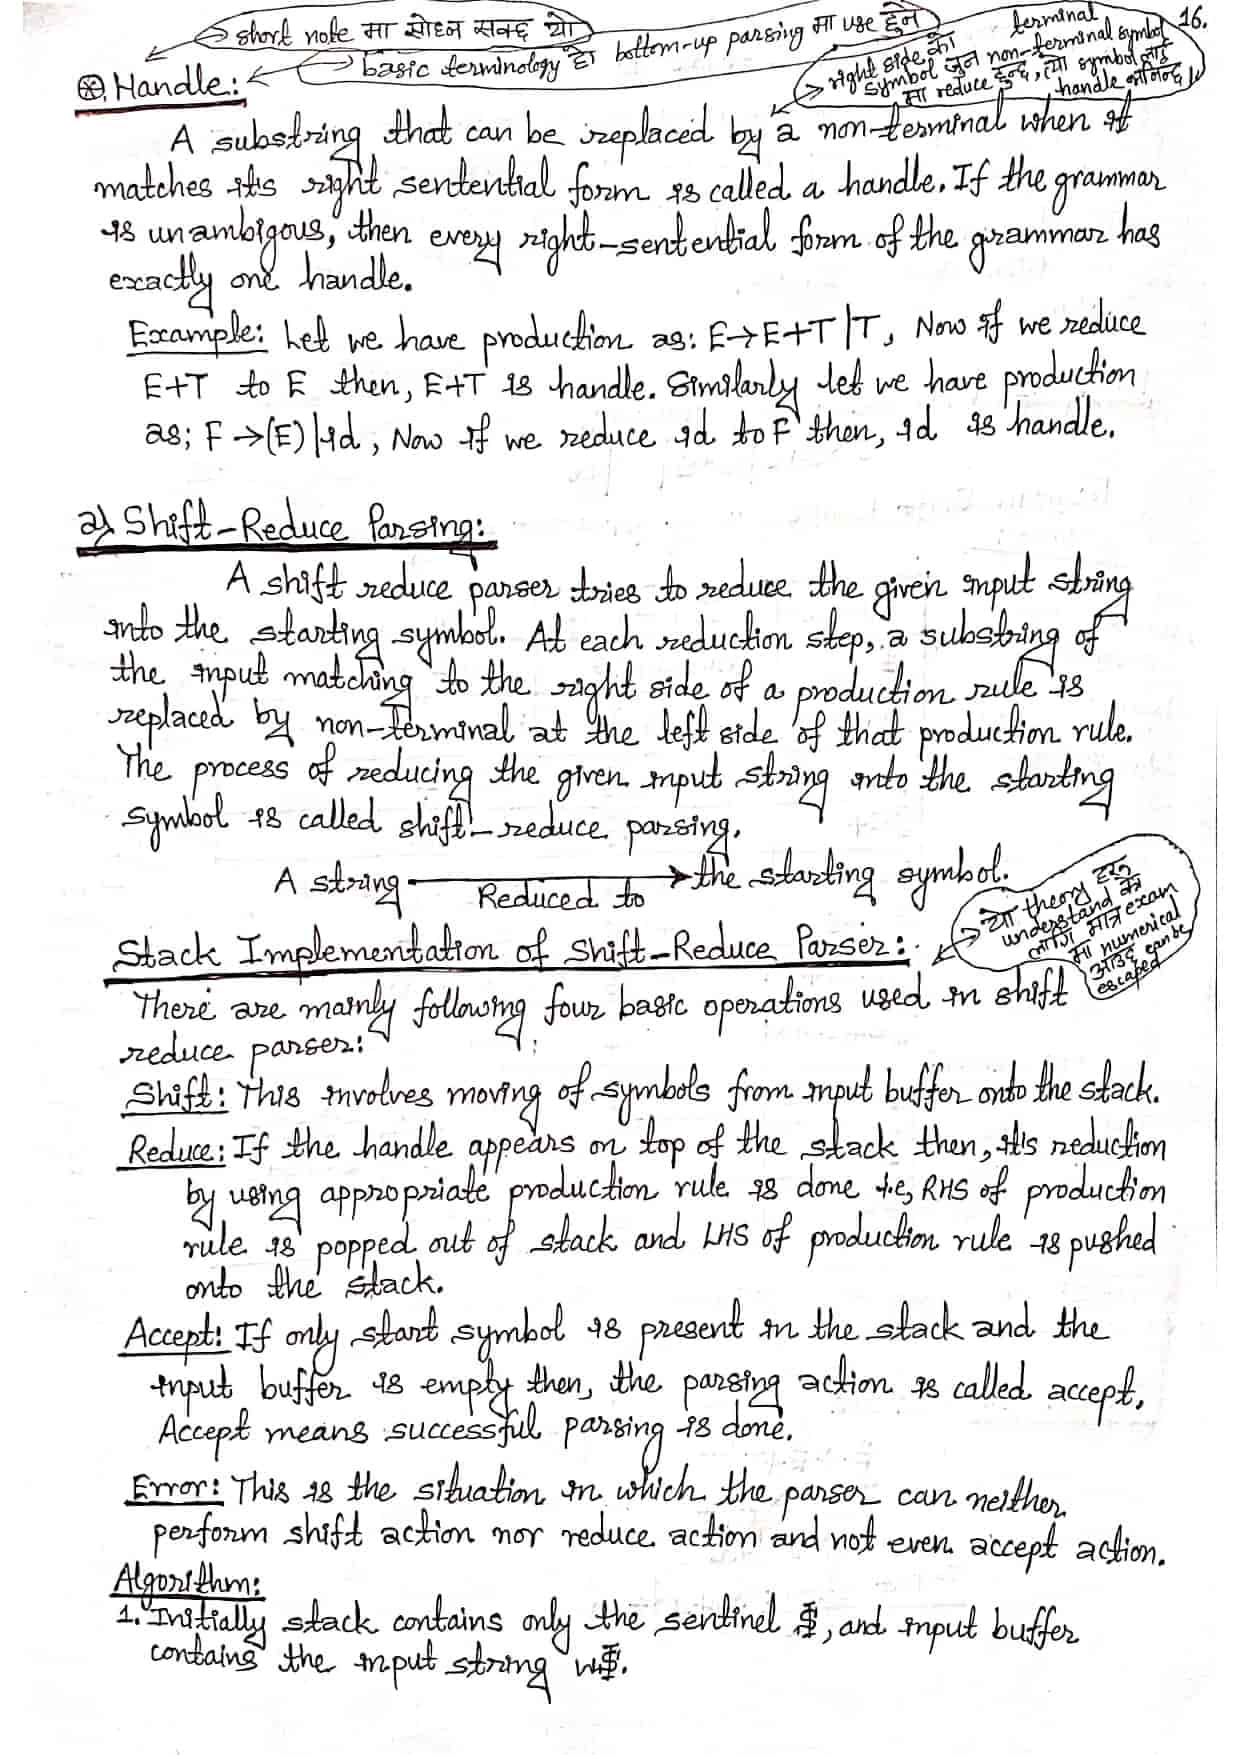 16.
short note मा सोध्न सक्छ यो
basic terminology हो bottom-up parsing मा use हुने
right side को terminal
symbol जुन non-terminal symbol
मा reduce हुन्छ, त्यो symbol लाई
handle भनिन्छ।
⊛. Handle:
A substring that can be replaced by a non-terminal when it
matches it's right sentential form is called a handle. If the grammar
is unambigous, then every right-sentential form of the grammar has
exactly one handle.
Example: Let we have production as: E→E+T|T, Now if we reduce
E+T to E then, E+T is handle. Similarly let we have production
as; F→(E)|id, Now if we reduce id to F then, id is handle.
a) Shift-Reduce Parsing:
A shift reduce parser tries to reduce the given input string
into the starting symbol. At each reduction step, a substring of
the input matching to the right side of a production rule is
replaced by non-terminal at the left side of that production rule.
The process of reducing the given input string into the starting
symbol is called shift-reduce parsing.
A string → the starting symbol.
Reduced to
यो theory हरू
understand को
लागि मात्र exam
मा numerical
आउछ can be
escaped
Stack Implementation of Shift-Reduce Parser:
There are mainly following four basic operations used in shift
reduce parser:
Shift: This involves moving of symbols from input buffer onto the stack.
Reduce: If the handle appears on top of the stack then, it's reduction
by using appropriate production rule is done i.e, RHS of production
rule is popped out of stack and LHS of production rule is pushed
onto the stack.
Accept: If only start symbol is present in the stack and the
input buffer is empty then, the parsing action is called accept.
Accept means successful parsing is done.
Error: This is the situation in which the parser can neither
perform shift action nor reduce action and not even accept action.
Algorithm:
1. Initially stack contains only the sentinel $, and input buffer
contains the input string w$.